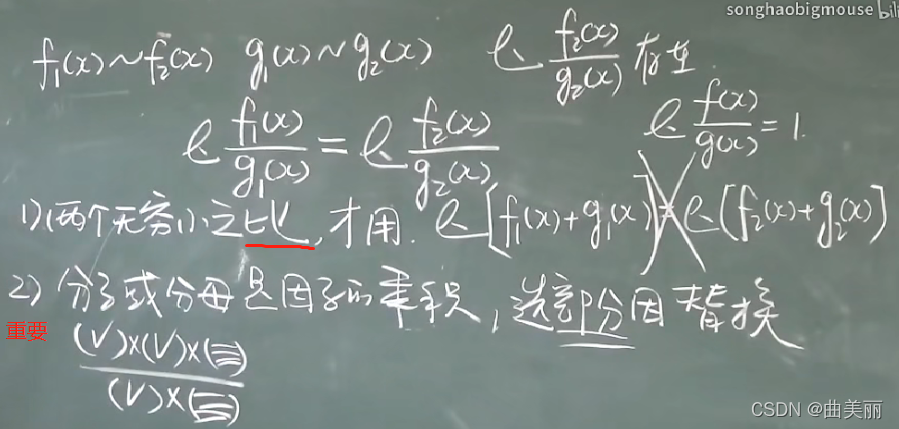 songhaobigmouse bili
f₁(x)~f₂(x) g₁(x)~g₂(x) ℓ f₂(x)/g₂(x) 存在
ℓ f₁(x)/g₁(x) = ℓ f₂(x)/g₂(x) ℓ f(x)/g(x) = 1.
1) (两个无穷小之比, 才用. ℓ[f₁(x)+g₁(x)] = ℓ[f₂(x)+g₂(x)]
2) 分子或分母是因子的乘积, 选部分因替换
重要
(√)×(√)×(三)/(√)×(三)
CSDN @曲美丽